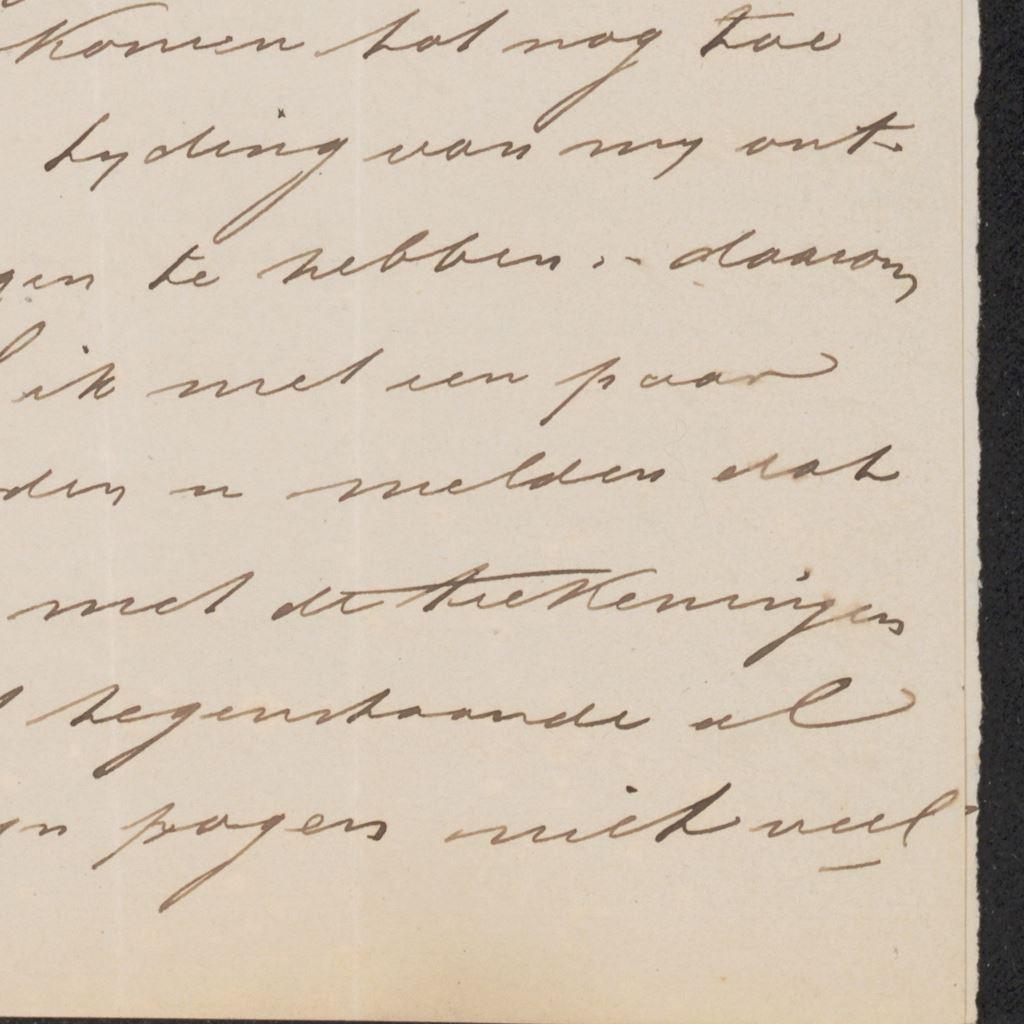 komen tot nog toe
tyding van my ont-
gen te hebben. - daarom
ik met een paar
den u melden dat
met de teekeningen
tegenstaande al
yn pogen niet veel